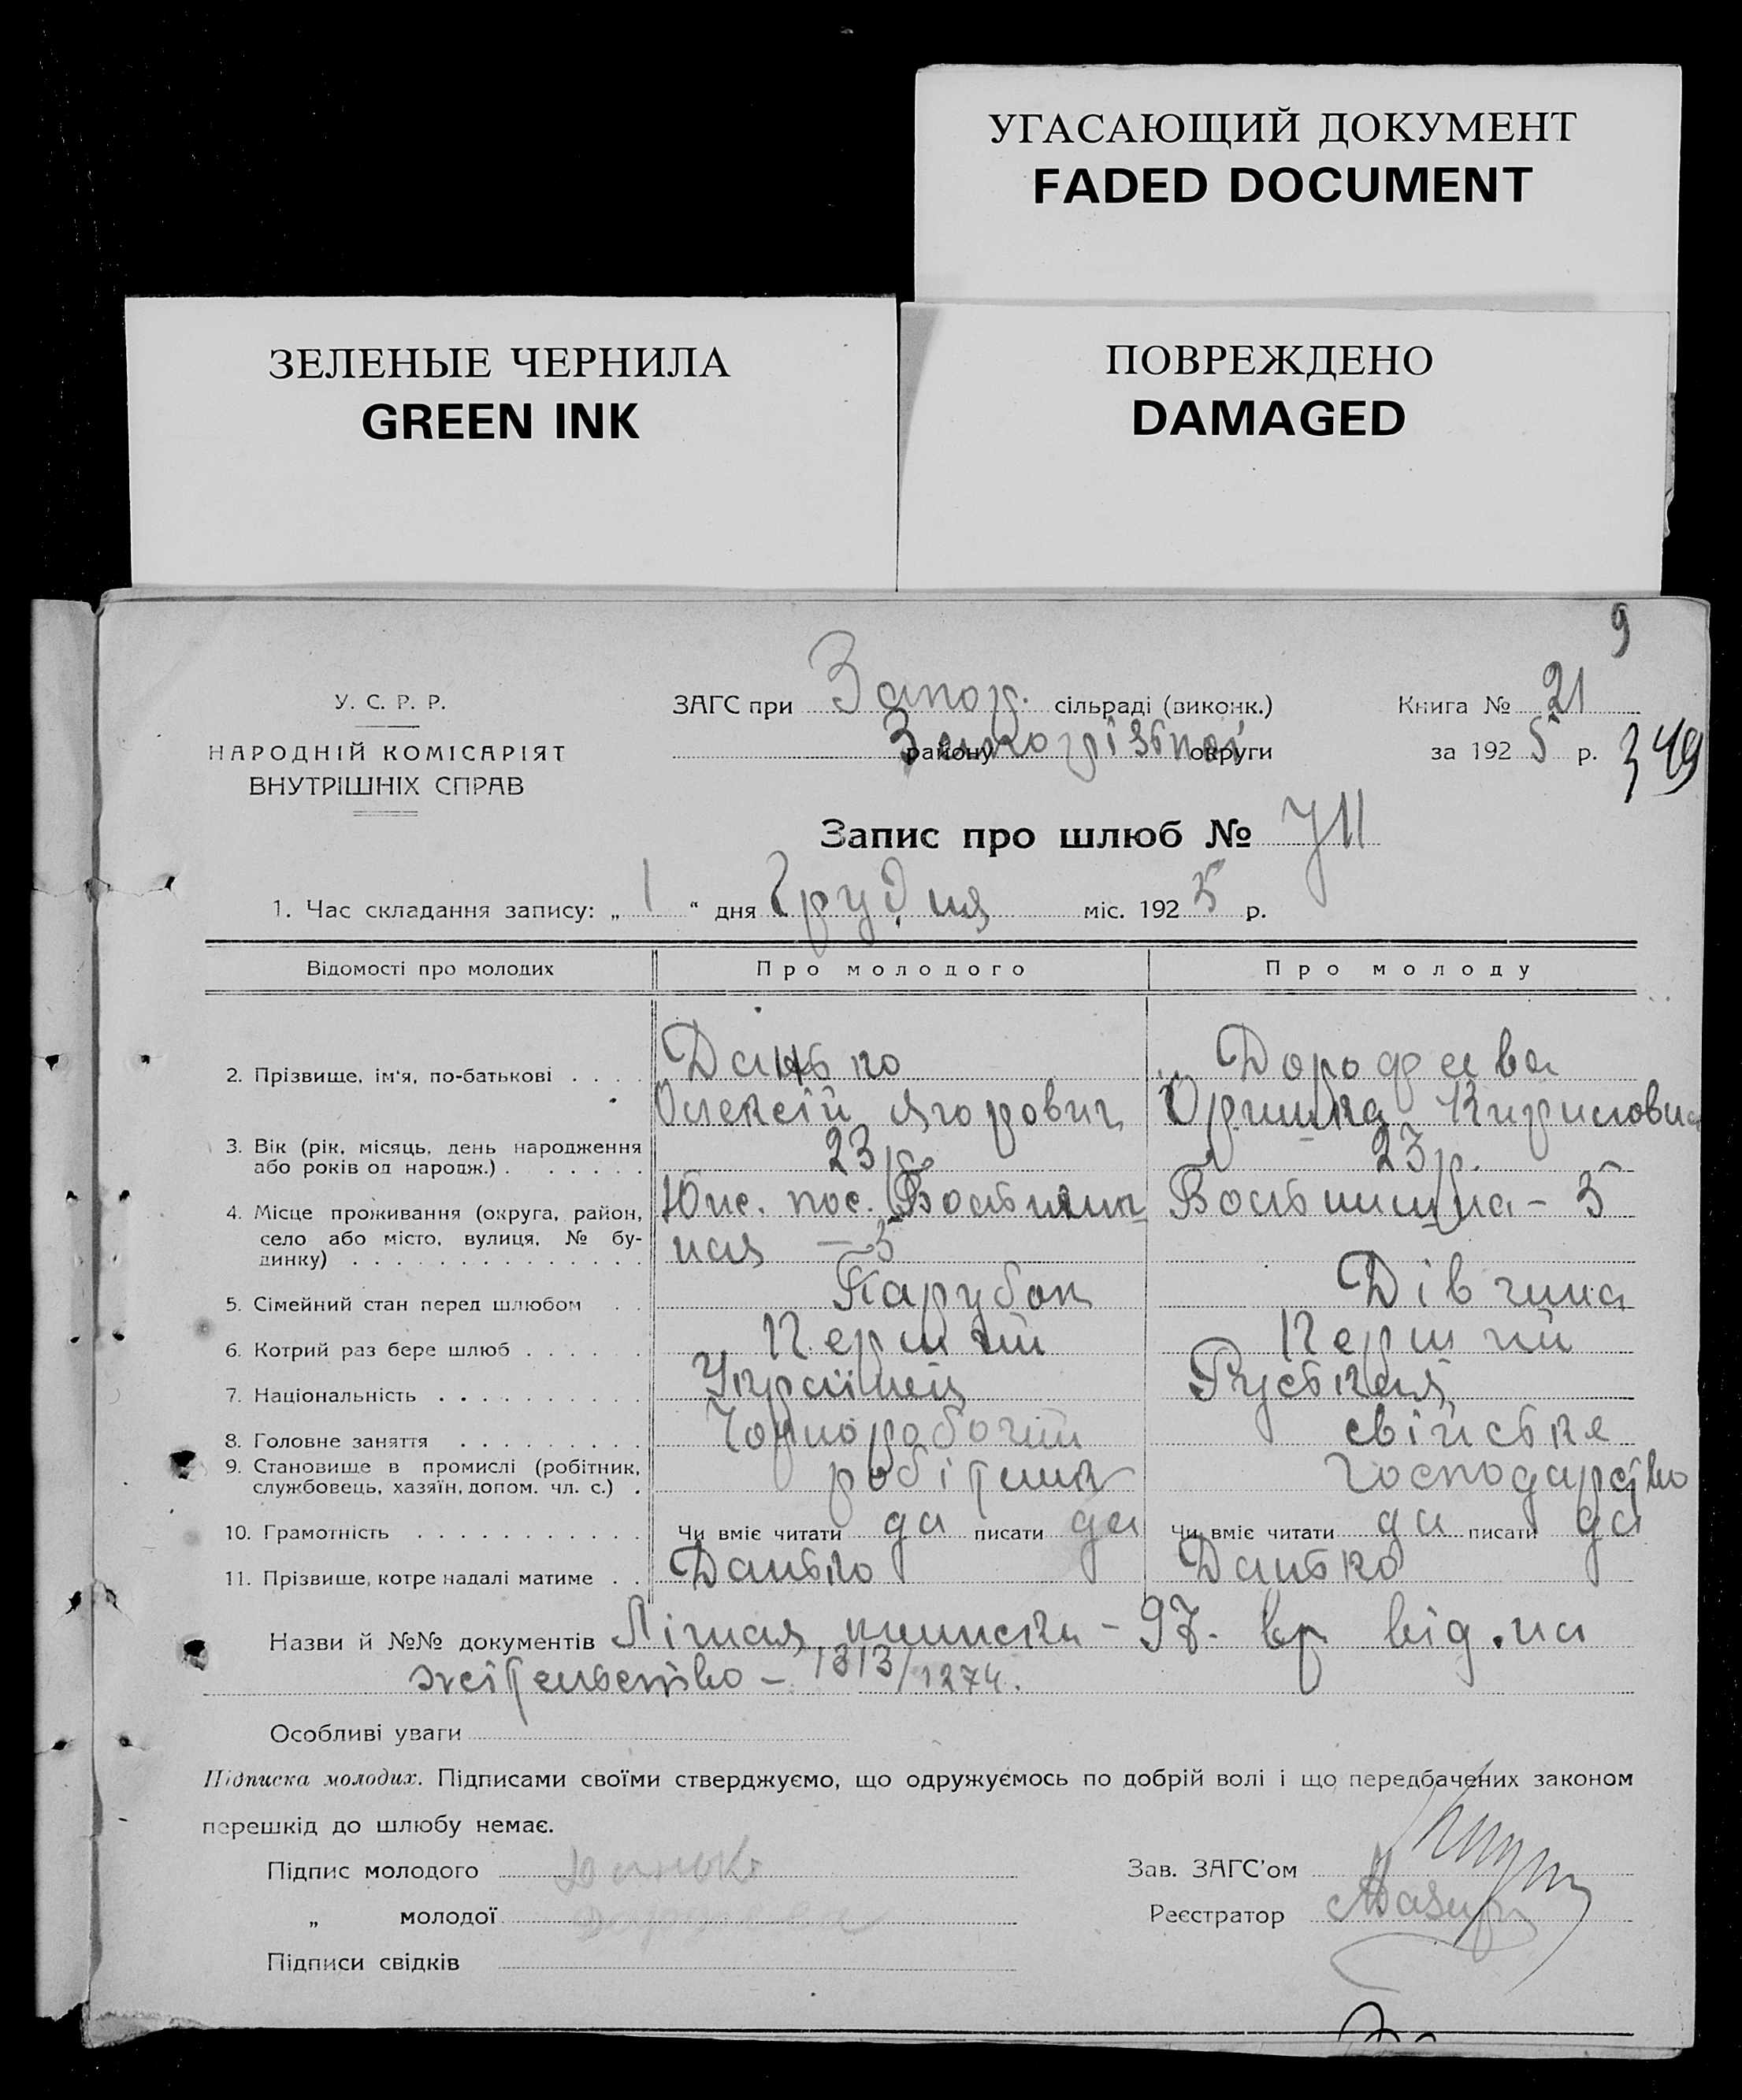 УГАСАЮЩИЙ ДОКУМЕНТ
FADED DOCUMENT
ЗЕЛЕНЫЕ ЧЕРНИЛА
GREEN INK
ПОВРЕЖДЕНО
DAMAGED
9
У. С. Р. Р.
НАРОДНІЙ КОМІСАРІЯТ
ВНУТРІШНІХ СПРАВ
ЗАГС при Запор. сільраді (виконк.)
району округи
Книга № 21
за 192 5 р.
349
Запис про шлюб № 711
1. Час складання запису: „ 1 “ дня Грудня міс. 192 5 р.
Відомості про молодих Про молодого Про молоду
2. Прізвище, ім'я, по-батькові . . . . Данько Дорофеева
Олексій Ягорович Оришка Кирилловна
3. Вік (рік, місяць, день народження
або років од народж.) . . . . . . 23 р. 23 р.
4. Місце проживання (округа, район,
село або місто, вулиця, № будинку) . . . . . . . . . . . . . . Юж. пос. 5
5
5. Сімейний стан перед шлюбом . . Парубок Дівчина
6. Котрий раз бере шлюб . . . . . . Перший Перший
7. Національність . . . . . . . . . Українець Руська
8. Головне заняття . . . . . . . . . Чорноробочий свійське
9. Становище в промислі (робітник,
службовець, хазяїн, допом. чл. с.) . робітник господарство
10. Грамотність . . . . . . . . . . . Чи вміє читати да писати да Чи вміє читати да писати да
11. Прізвище, котре надалі матиме . . Данько Данько
Назви й №№ документів Лічная книжка - 97. вр від. на
жітельство - 1313/1274.
Особливі уваги
Підписка молодих. Підписами своїми стверджуємо, що одружуємось по добрій волі і що передбачених законом
перешкід до шлюбу немає.
Підпис молодого Данько Зав. ЗАГС’ом
„ молодої Дорофеева Реєстратор
Підписи свідків